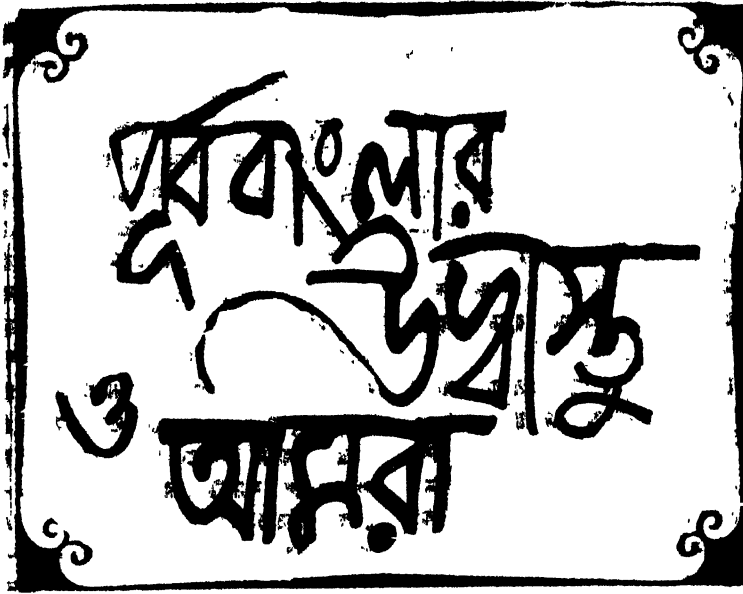 পূর্ব বাংলার
উদ্বাস্তু
ও
আমরা